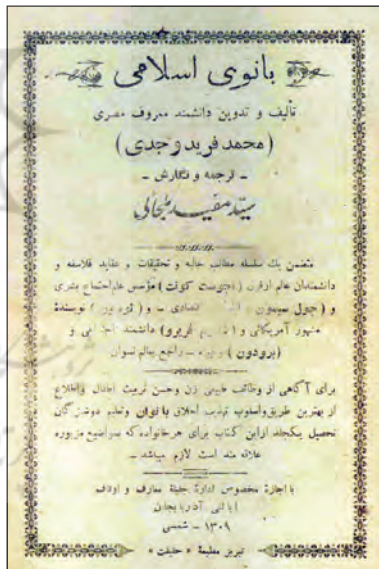 بانوی اسلامی
تألیف و تدوین دانشمند معروف مصری
( محمد فرید وجدی )
ـ ترجمه و نگارش ـ
سید مفید
متضمن یک سلسله مطالب عالیه و تحقیقات و عقاید فلاسفه و
دانشمندان عالم از قرن ( اجوست کونت ) مؤسس علم اجتماع بشری
و ( جول سیمون ) اقتصادی ـ و نویسندهٔ
مشهور آمریکائی و ( فریرو ) دانشمند اجتماعی و
( برودون ) وغیره ـ راجع بعالم نسوان
برای آگاهی از وظائف طبیعی زن وحسن تربیت اطفال واطلاع
از بهترین طریق واسلوب تهذیب اخلاق بانوان وتعلیم دوشیزگان
تحصیل یکجلد ازاین کتاب برای هر خانواده که بمواضیع مزبوره
علاقه مند است لازم میباشد ـ
با اجازهٔ مخصوص ادارهٔ جلیلهٔ معارف و اوقاف
ایالتی آذربایجان
۱۳۰۹ ـ شمسی
تبریز مطبعهٔ « حقیقت »